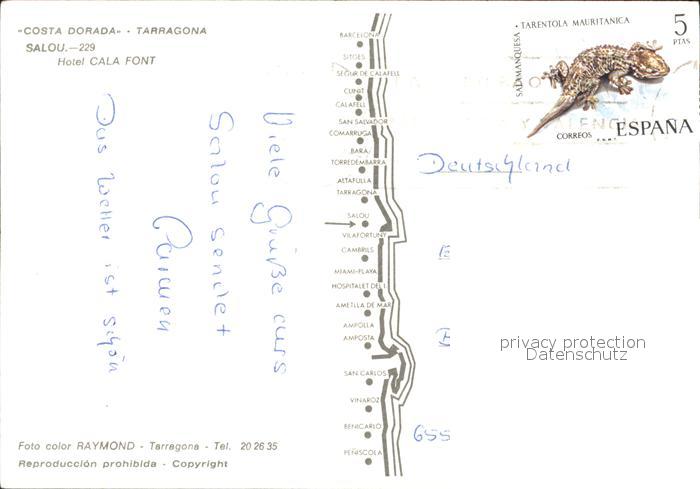 "COSTA DORADA" - TARRAGONA
SALOU.—229
Hotel CALA FONT
Viele Grüße aus
Salou sendet
Carmen
Das Wetter ist schön
BARCELONA
SITGES
SEGUR DE CALAFELL
CUNIT
CALAFELL
SAN SALVADOR
COMARRUGA
BARA
TORREDEMBARRA
ALTAFULLA
TARRAGONA
SALOU
VILAFORTUNY
CAMBRILS
MIAMI-PLAYA
HOSPITALET DEL I.
AMETLLA DE MAR
AMPOLLA
AMPOSTA
SAN CARLOS
VINAROZ
BENICARLO
PEÑISCOLA
SALAMANQUESA • TARENTOLA MAURITANICA
5
PTAS
CORREOS F.N.M.T. ESPAÑA
Deutschland
E
E
655
privacy protection
Datenschutz
Foto color RAYMOND - Tarragona - Tel. 20 26 35
Reproducción prohibida - Copyright